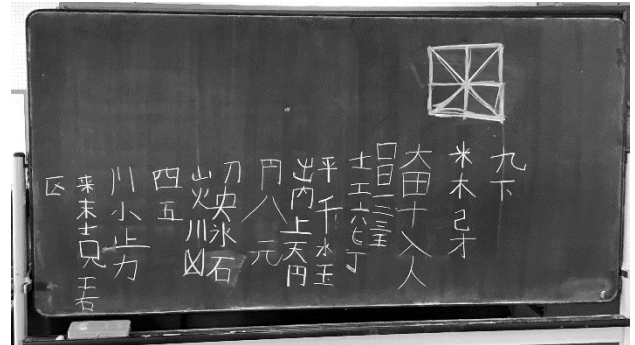 九下
米木己才
大田十入人
口日一二三王
士工六七丁
平千水玉
出内上天円
円八元
刀央氷石
山火川凶
四五
川小止力
来末吉兄王右
区